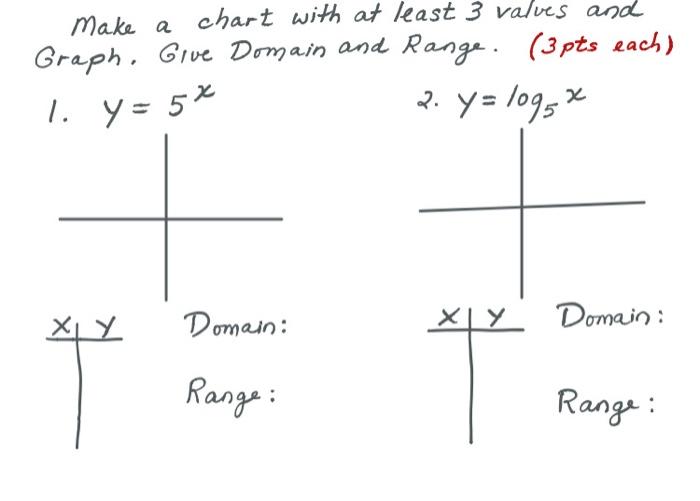 Make a chart with at least 3 values and
Graph. Give Domain and Range. (3pts each)
1. y = 5^x
2. y = log₅ x
X Y
Domain:
Range:
X Y
Domain:
Range: